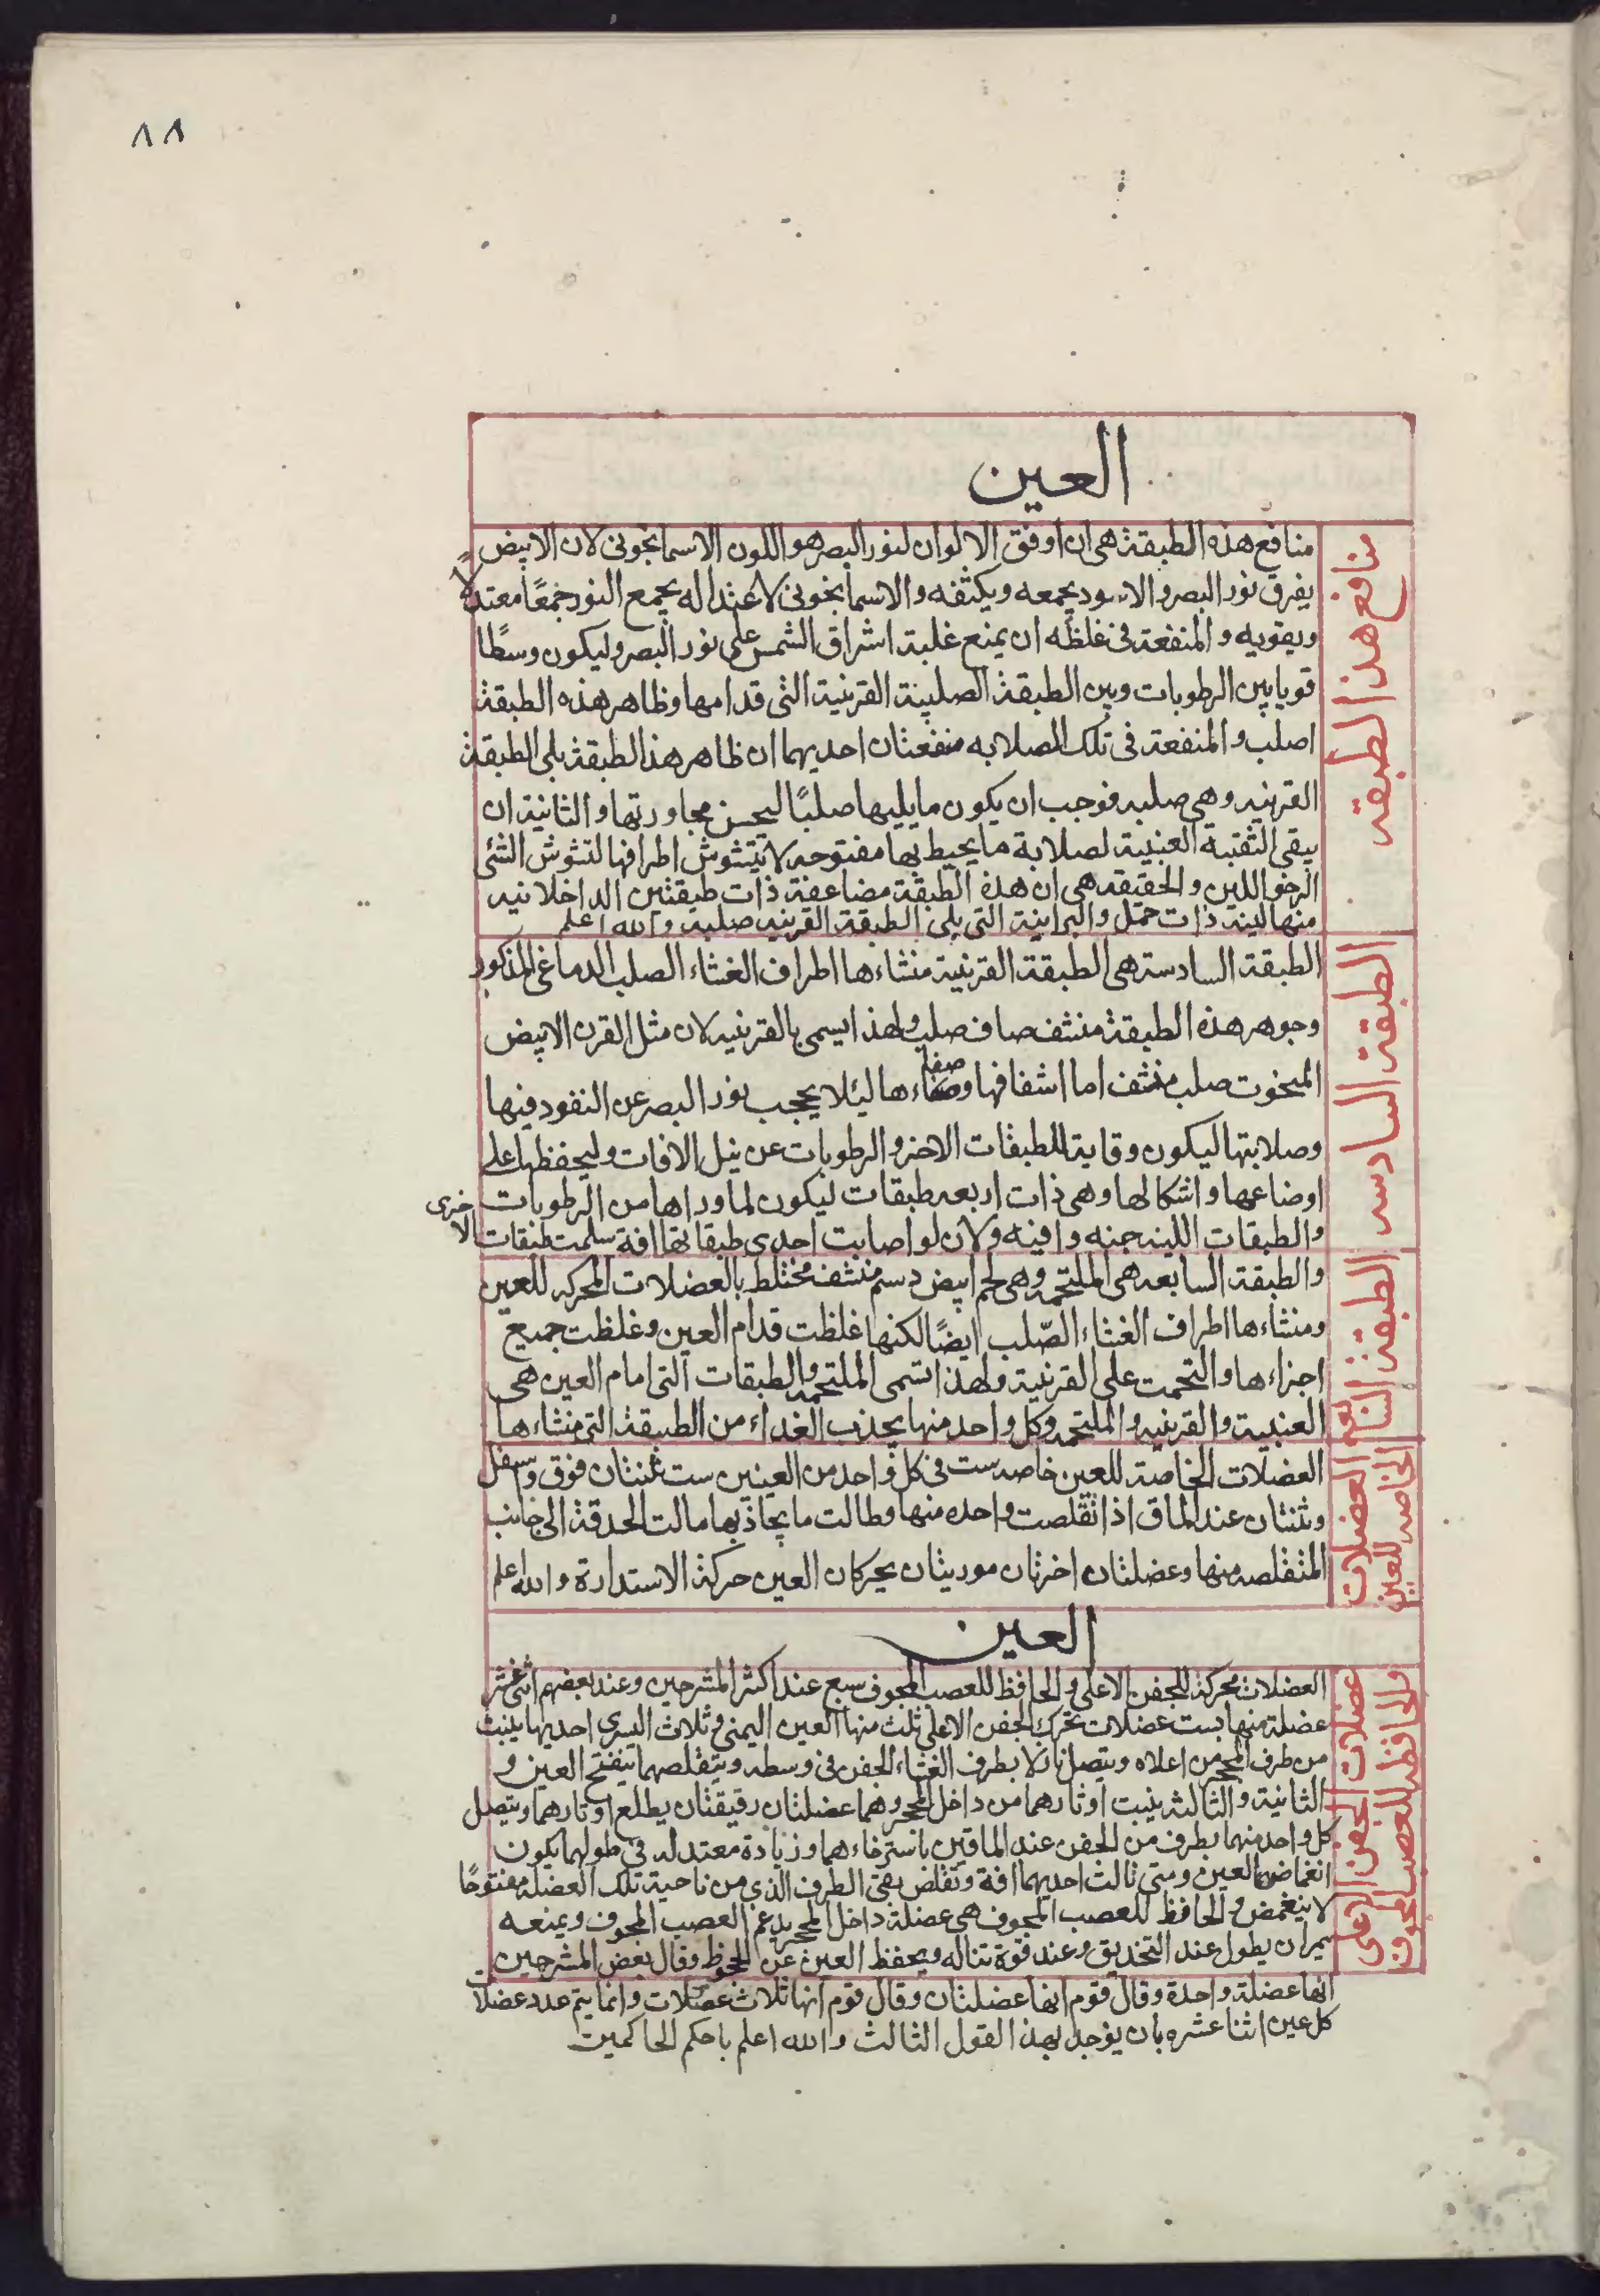 ٨٨
العين
منافع هذا الطبقه
منافع هذه الطبقة هى ان اوفق الالوان لنور البصر هو اللون الاسمانجونى لان الابيض
يفرق نور البصر والاسود يجمعه ويكثفه والاسمانجونى لاعتداله يجمع النور جمعًا معتدلًا
ويقويه والمنفعة فى غلظه ان يمنع غلبة اشراق الشمس على نور البصر وليكون وسطًا
قويا بين الرطوبات وبين الطبقة الصلبة القرنية التى قدامها وظاهر هذه الطبقة
اصلب والمنفعة فى تلك الصلابه منفعتان احديهما ان ظاهر هذا الطبقة يلى الطبقة
القرنيه وهى صلبه فوجب ان يكون ما يليها صلبًا ليحسن مجاورتها والثانية ان
يبقى الثقبة العنبية لصلابة ما يحيط بها مفتوحه لا يتشوش اطرافها لتشوش الشئ
الرخو اللين والحقيقه هى ان هذه الطبقة مضاعفة ذات طبقتين الداخلانيه
منها لينة ذات خمل والبرانية التى يلى الطبقة القرنيه صلبه والله اعلم
الطبقة السادسه
الطبقة السادسة هى الطبقة القرنية منشاءها اطراف الغشاء الصلب الدماغى المذكور
وجوهر هذه الطبقة منشف صاف صلب ولهذا يسمى بالقرنيه لان مثل القرن الابيض
المنحوت صلب منشف اما اشفافها وصفاءها ليئلا يحجب نور البصر عن النفود فيها
وصلابتها ليكون وقاية للطبقات الاخر والرطوبات عن نيل الافات وليحفظها على
اوضاعها واشكالها وهى ذات اربعه طبقات ليكون لما وراها من الرطوبات
والطبقات اللينه جنه وافيه ولان لو اصابت احدى طبقاتها افة سلمت طبقات الاخرى
الطبقة السابعه
والطبقة السابعه هى الملتحمه وهى لحم ابيض دسم منشف مختلط بالعضلات المحركه للعين
ومنشاءها اطراف الغشاء الصّلب ايضًا لكنها غلظت قدام العين وغلظت جميع
اجزاءها والتحمت على القرنية ولهذا تسمى الملتحمه والطبقات التى امام العين هى
العنبية والقرنيه والملتحمه وكل واحد منها يجذب الغداء من الطبقة التى منشاءها
العضلات الخاصه للعين
العضلات الخاصة للعين خاصه ست فى كل واحد من العينين ست ثنتان فوق واسفل
وثنتان عند الماق اذا تقلصت واحده منها وطالت ما يحاذيها مالت الحدقة الى جانب
المتقلصه منها وعضلتان اخرتان موربتان يحركان العين حركة الاستدارة والله اعلم
العين
عضلات الجفن الاعلى والحافظ للعصب المجوف
العضلات محركة للجفن الاعلى والحافظ للعصب المجوف سبع عند اكثر المشرحين وعند بعضهم اثنى عشر
عضلة منها ست عضلات تحرك الجفن الاعلى ثلث منها العين اليمنى وثلاث اليسرى احديها ينبت
من طرف المحجر من اعلاه ويتصل نازلا بطرف الغشاء الجفن فى وسطه وبتقلصهما يتفتح العين و
الثانية والثالثه ينبت اوتارهما من داخل المحجر وهما عضلتان رقيقتان يطلع اوتارهما ويتصل
كل واحد منهما بطرف من الجفن عند الماقين باسترخاءهما وزيادة معتدله فى طولهما يكون
انغماضها العين ومتى نالت احديهما افة وتقلص بقى الطرف الذى من ناحية تلك العضله مفتوحًا
لا ينغمض والحافظ للعصب المجوف هى عضلة داخل المحجر يدعم العصب المجوف ويمنعه
من ان يطول عند التحديق وعند قوة تناله ويحفظ العين عن الجحوظ وقال بعض المشرحين
انها عضلة واحدة وقال قوم انها عضلتان وقال قوم انها ثلاث عضلات وانما يتم عدد عضلات
كل عين اثنا عشره بان يوجد بهذا القول الثالث والله اعلم باحكم الحاكمين